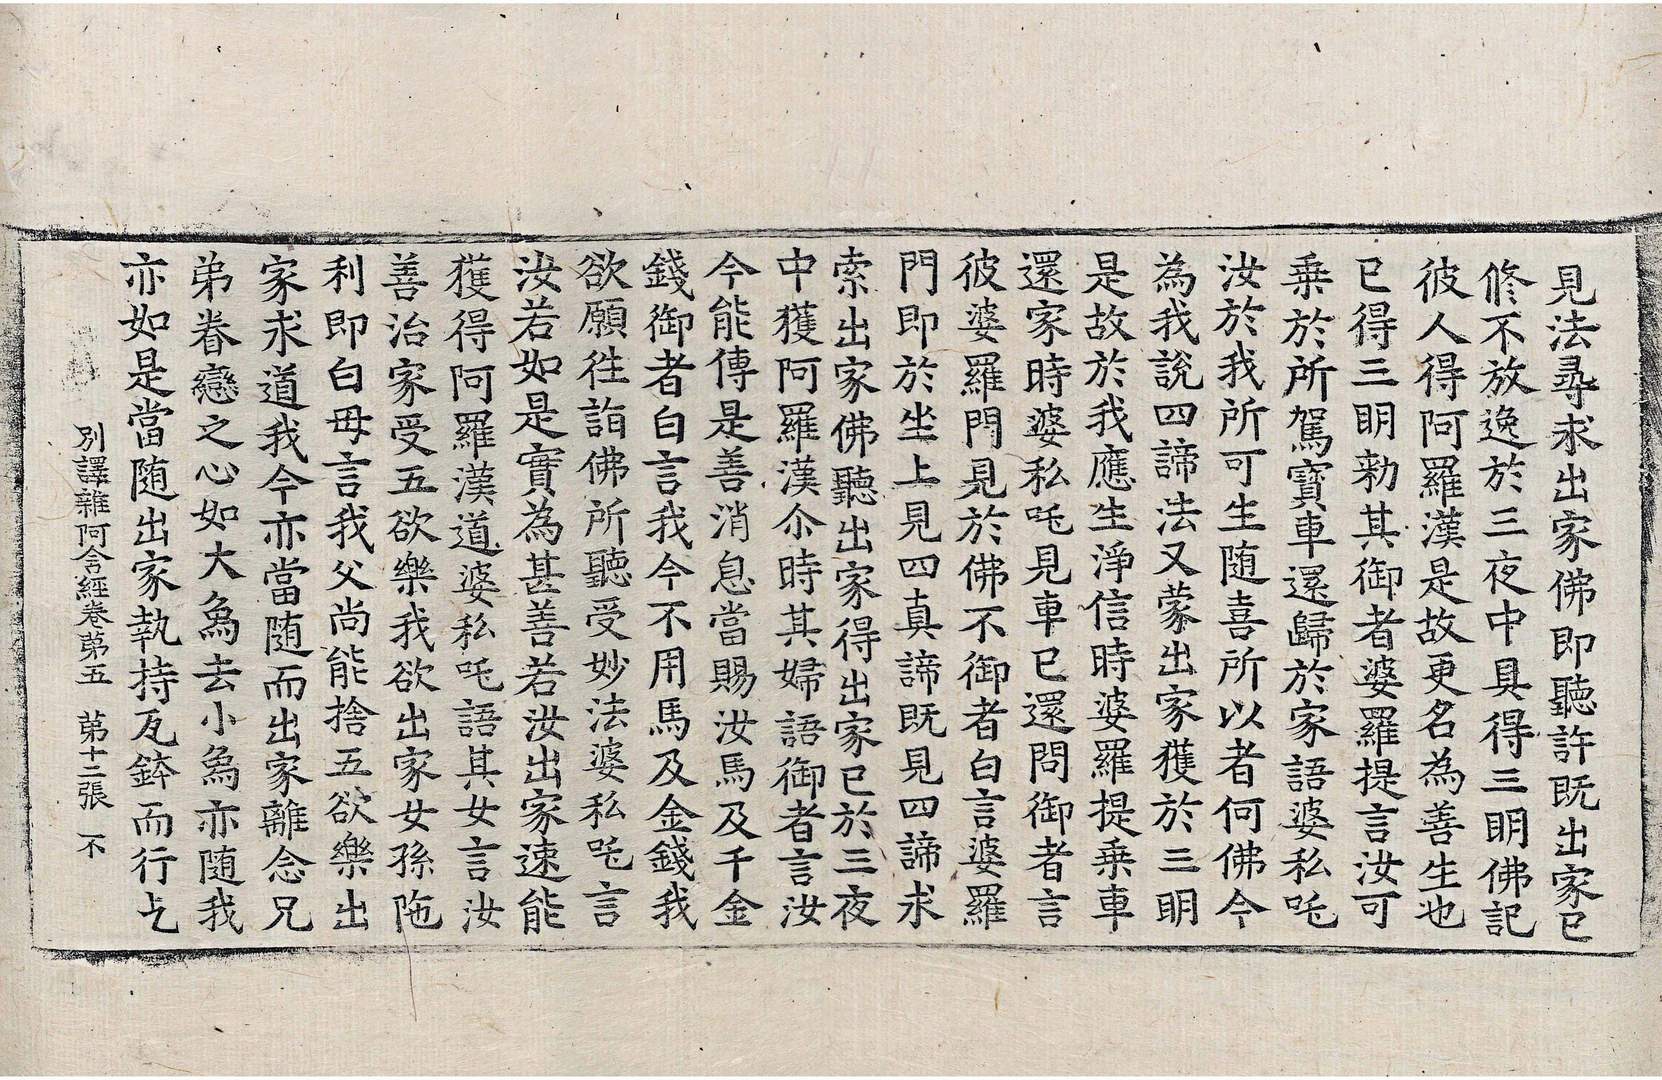 見法尋求出家佛即聽許既出家已
修不放逸於三夜中具得三明佛記
彼人得阿羅漢是故更名為善生也
已得三明勑其御者婆羅提言汝可
乘於所駕寶車還歸於家語婆私吒
汝於我所可生随喜所以者何佛今
為我說四諦法又蒙出家獲於三明
是故於我應生淨信時婆羅提乗車
還家時婆私吒見車已還問御者言
彼婆羅門見於佛不御者白言婆羅
門即於坐上見四真諦既見四諦求
索出家佛聽出家得出家已於三夜
中獲阿羅漢尒時其婦語御者言汝
今能傳是善消息當賜汝馬及千金
錢御者白言我今不用馬及金錢我
欲願徃詣佛所聽受妙法婆私吒言
汝若如是實為甚善若汝出家速能
獲得阿羅漢道婆私吒語其女言汝
善治家受五欲樂我欲出家女孫陁
利即白母言我父尚能捨五欲樂出
家求道我今亦當随而出家離念兄
弟眷戀之心如大鳥去小鳥亦随我
亦如是當随出家執持瓦鉢而行乞
別譯雜阿含經卷苐五　苐十二張　不